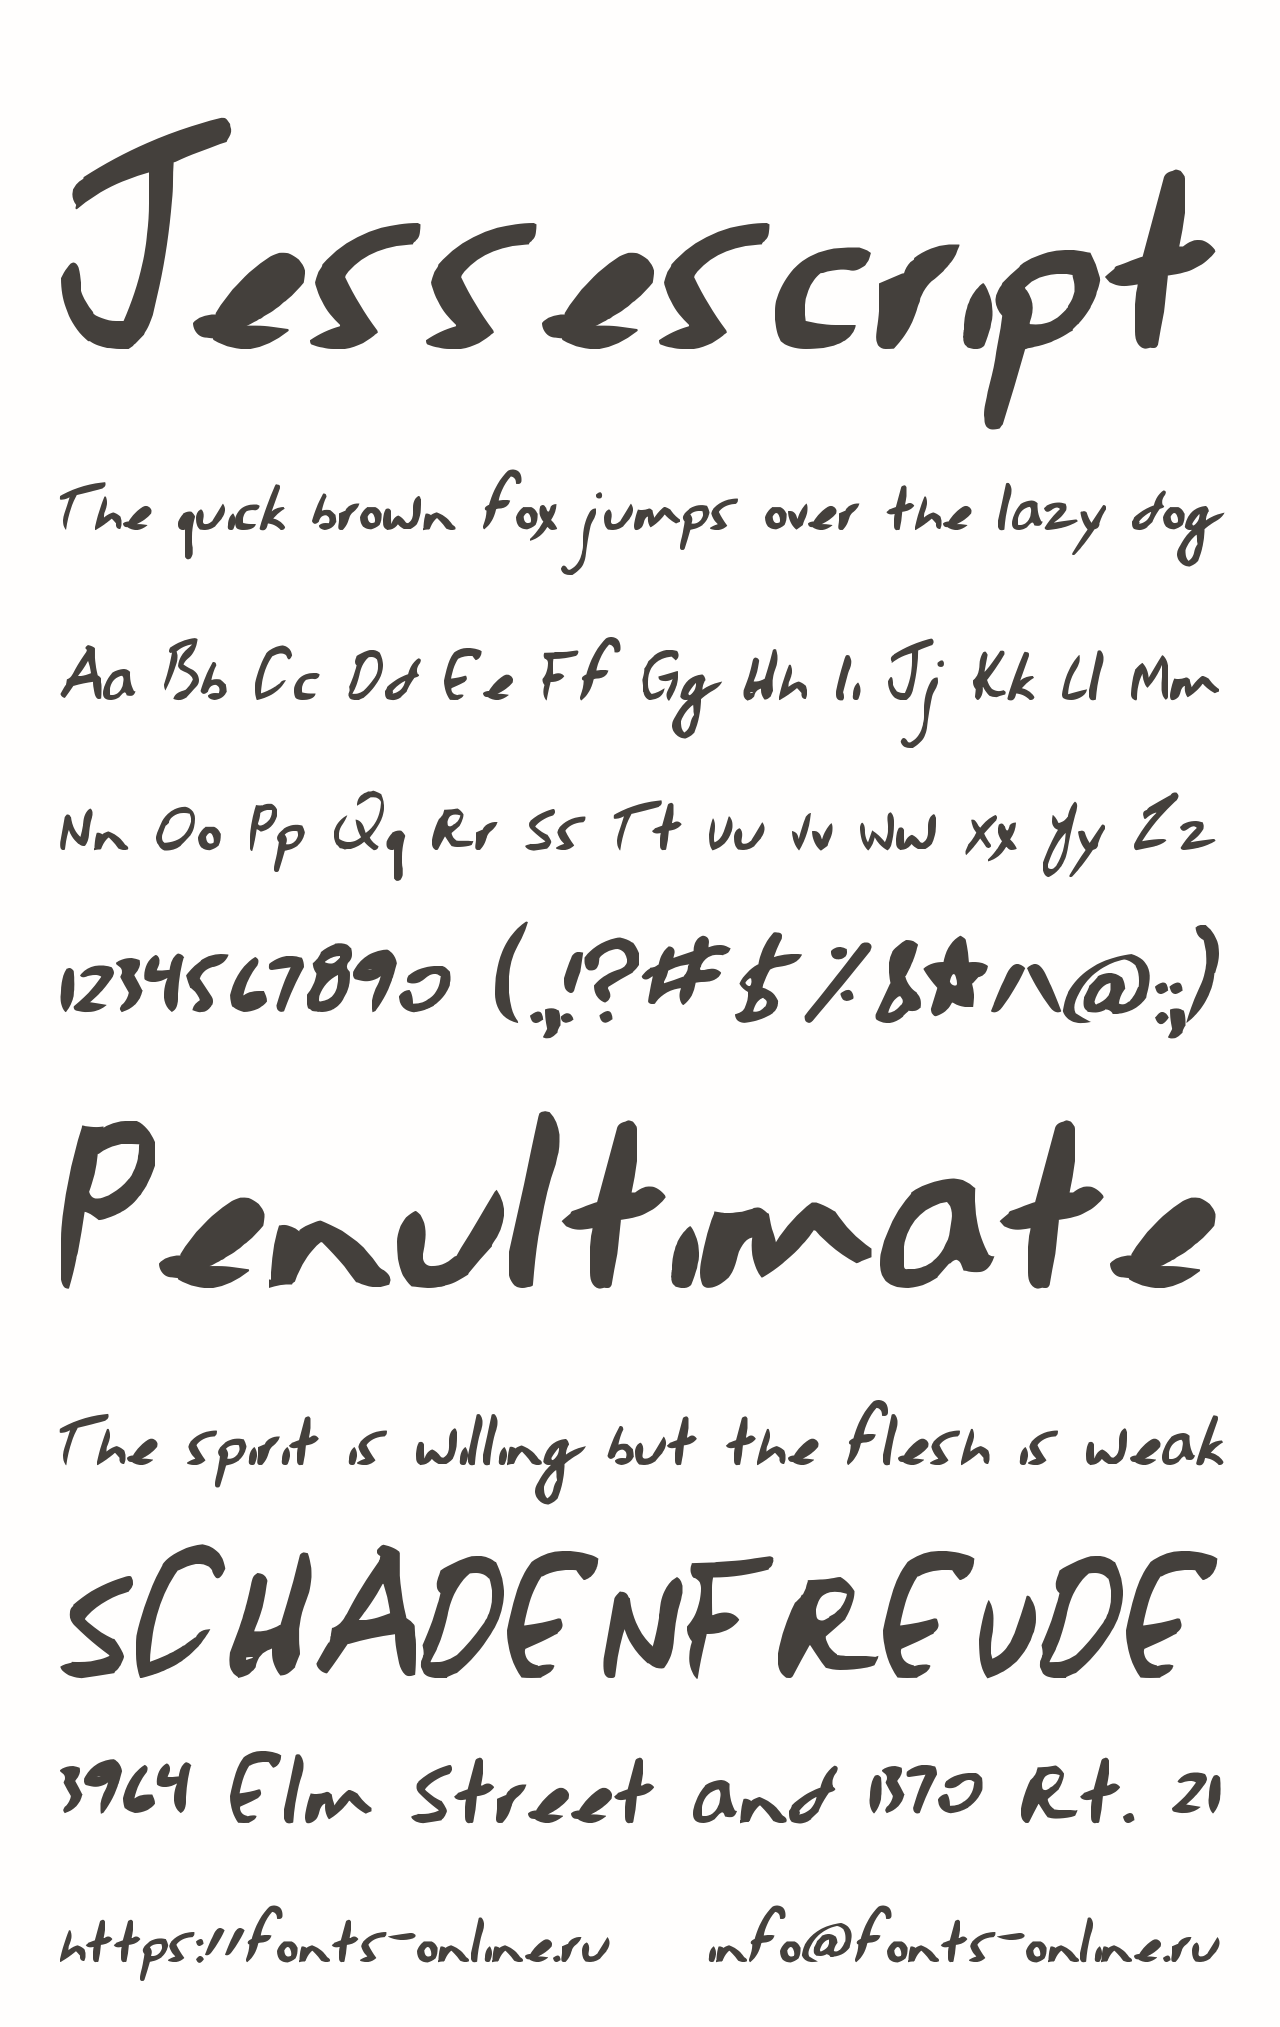 Jessescript
The quick brown fox jumps over the lazy dog
Aa Bb Cc Dd Ee Ff Gg Hh Ii Jj Kk Ll Mm
Nn Oo Pp Qq Rr Ss Tt Uu Vv Ww Xx Yy Zz
1234567890 (.,!?#$%&*^@:;)
Penultimate
The spirit is willing but the flesh is weak
SCHADENFREUDE
3964 Elm Street and 1370 Rt. 21
https://fonts-online.ru info@fonts-online.ru